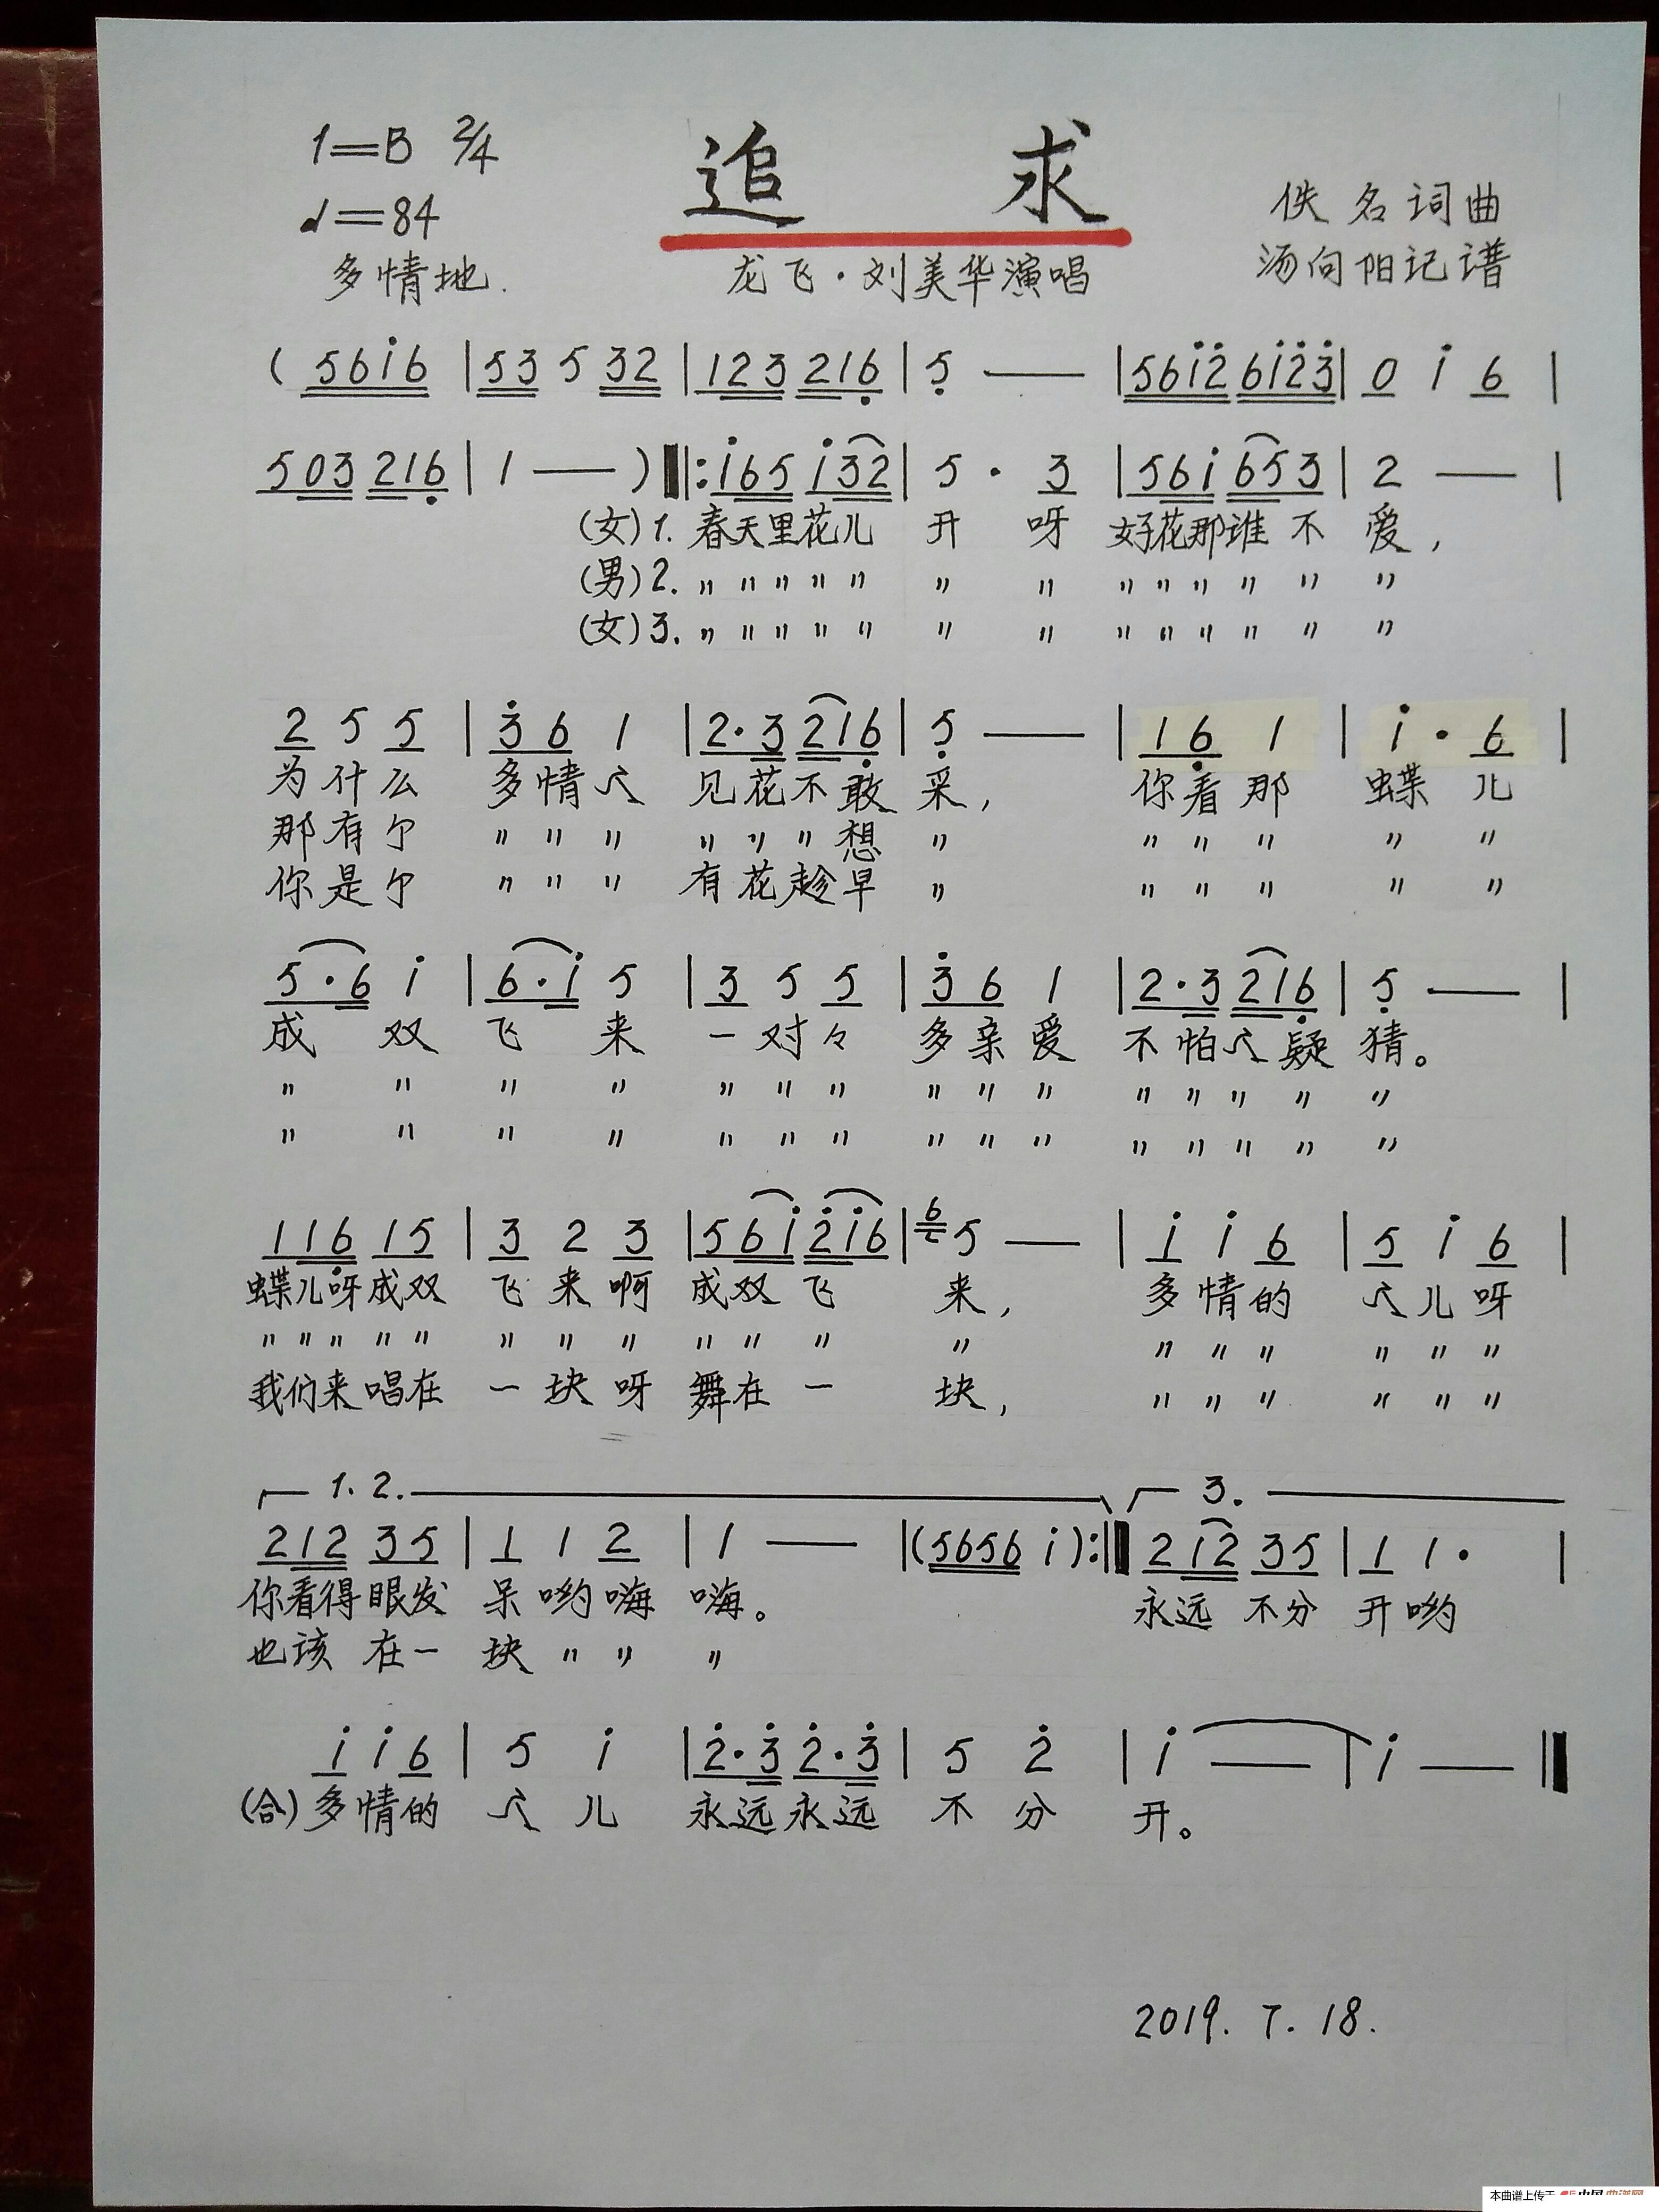 1=B 2/4
♩=84
多情地.
追 求
龙飞·刘美华演唱
佚名词曲
汤向阳记谱
( 5 6 i 6 | 5 3 5 3 2 | 1 2 3 2 1 6 | 5 — | 5 6 i 2 6 i 2 3 | 0 i 6 |
5 0 3 2 1 6 | 1 — ) ‖: i 6 5 i 3 2 | 5 · 3 | 5 6 i 6 5 3 | 2 — |
(女) 1. 春天里花儿 开 呀 好花那谁 不 爱,
(男) 2. 〃 〃 〃 〃 〃 〃 〃 〃 〃 〃 〃 〃 〃
(女) 3. 〃 〃 〃 〃 〃 〃 〃 〃 〃 〃 〃 〃 〃
2 5 5 | 3 6 1 | 2 · 3 2 1 6 | 5 — | 1 6 1 | i · 6 |
为什么 多情人 见花不敢 采, 你看那 蝶 儿
那有个 〃 〃 〃 〃 〃 〃 想 〃 〃 〃 〃 〃 〃
你是个 〃 〃 〃 有花趁早 〃 〃 〃 〃 〃 〃
5 · 6 i | 6 · i 5 | 3 5 5 | 3 6 1 | 2 · 3 2 1 6 | 5 — |
成 双 飞 来 一对々 多亲爱 不怕人疑 猜。
〃 〃 〃 〃 〃 〃 〃 〃 〃 〃 〃 〃 〃 〃 〃
〃 〃 〃 〃 〃 〃 〃 〃 〃 〃 〃 〃 〃 〃 〃
1 1 6 1 5 | 3 2 3 | 5 6 i 2 i 6 | 6 5 — | i i 6 | 5 i 6 |
蝶儿呀成双 飞来啊 成双飞 来, 多情的 人儿呀
〃 〃 〃 〃 〃 〃 〃 〃 〃 〃 〃 〃 〃 〃 〃 〃 〃 〃
我们来唱在 一块呀 舞在一 块, 〃 〃 〃 〃 〃 〃
1. 2. 3.
2 1 2 3 5 | 1 1 2 | 1 — | ( 5 6 5 6 i ) :‖ 2 1 2 3 5 | 1 1 · |
你看得眼发 呆哟嗨 嗨。 永远 不分 开哟
也该 在一 块 〃 〃 〃
i i 6 | 5 i | 2 · 3 2 · 3 | 5 2 | i — | i — ‖
(合) 多情的 人 儿 永远永远 不 分 开。
2019. 7. 18.
本曲谱上传于